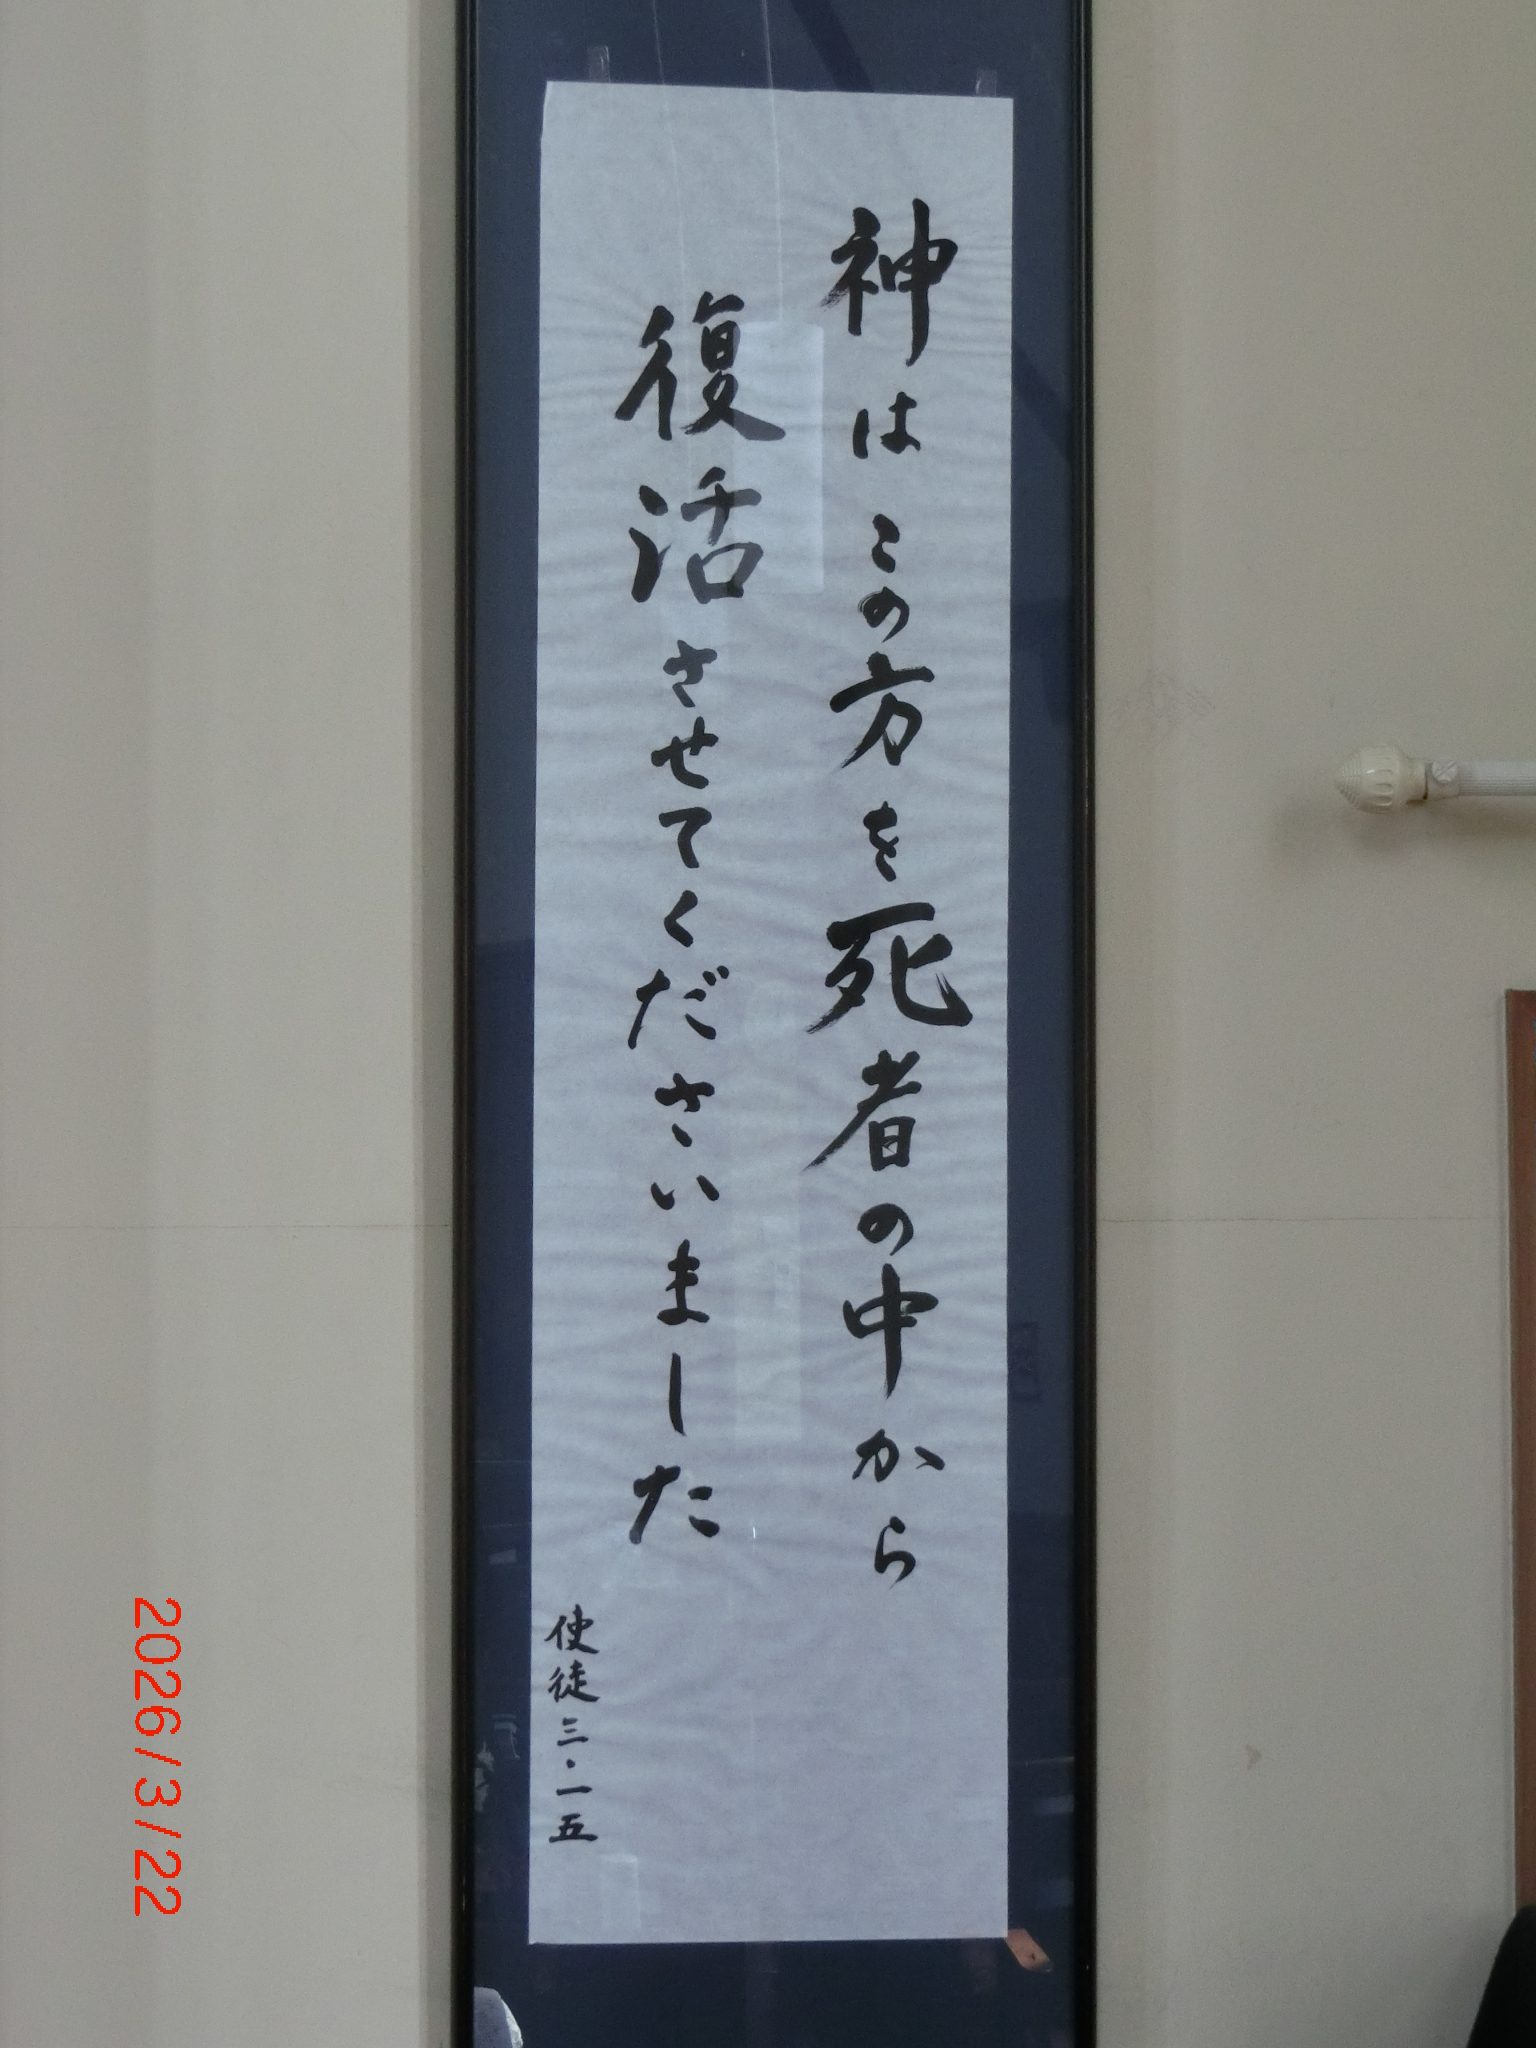 神はこの方を死者の中から
復活させてくださいました
使徒三・一五
2026/3/22